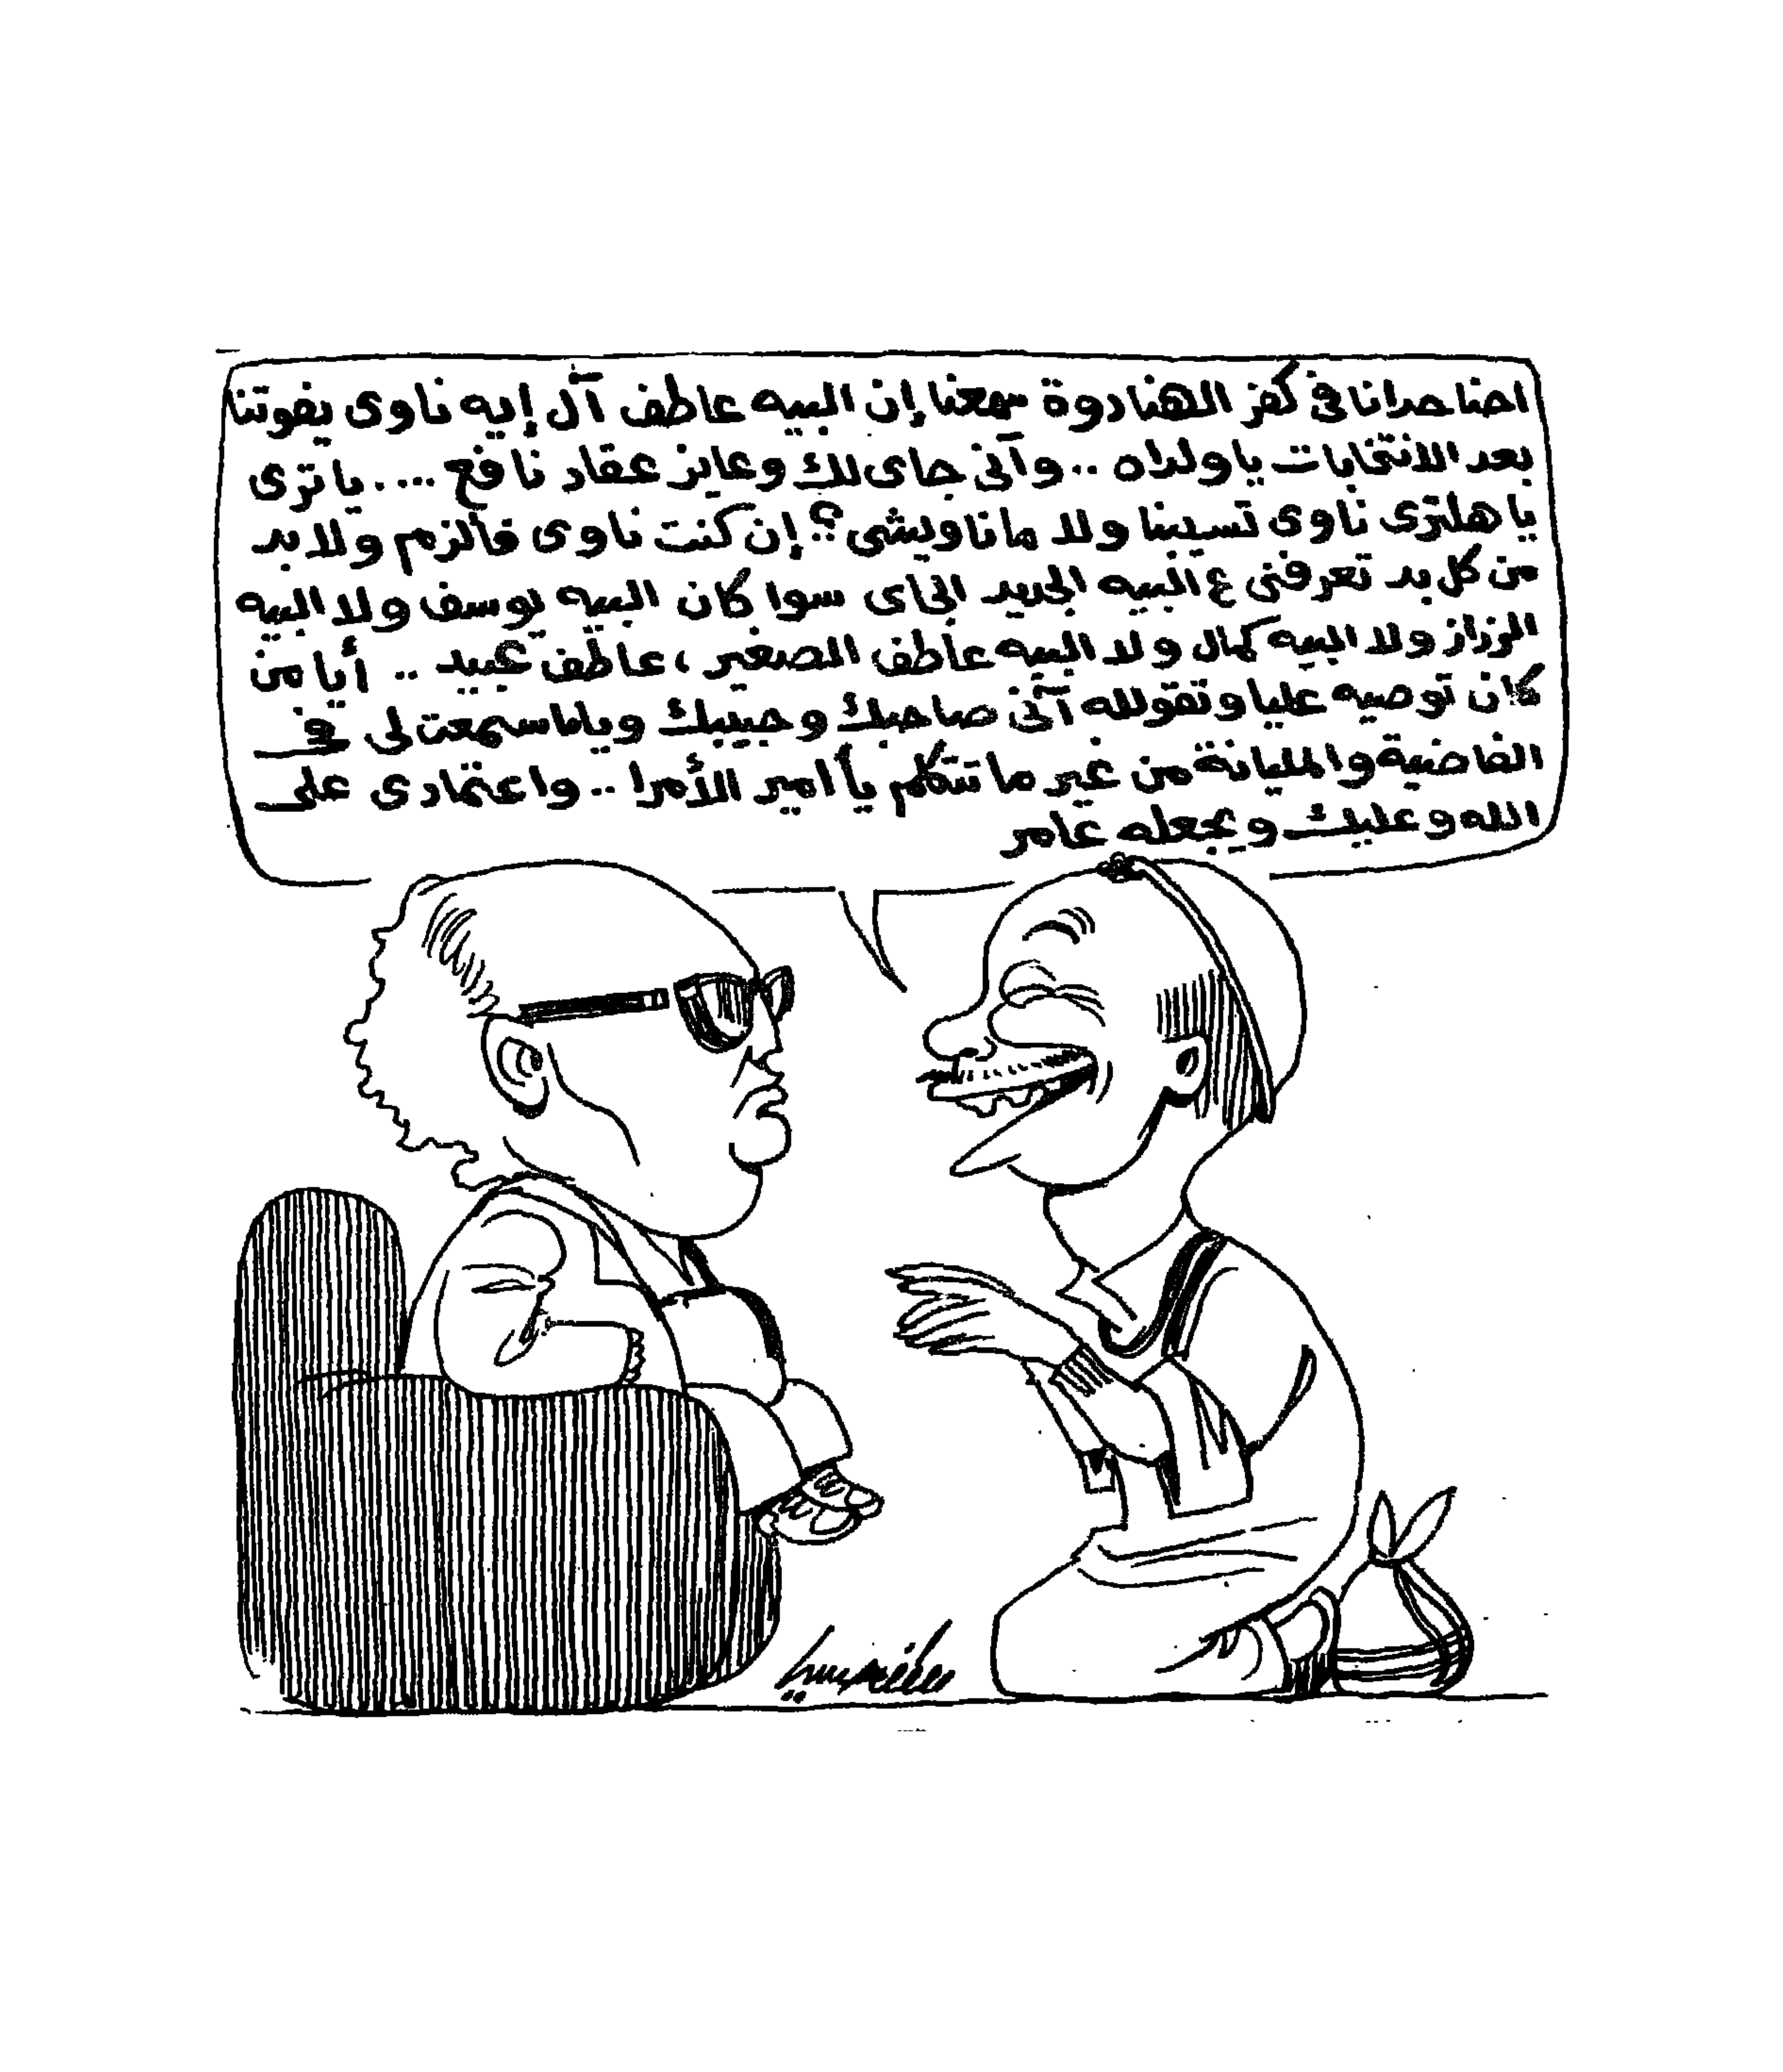 احنا حدانا في كفر الهنادوة سمعنا إن البيه عاطف آل إيه ناوى يفوتنا
بعد الانتخابات ياولداه .. وآنى جاى لك وعايز عقاد نافع .... ياترى
ياهلترى ناوى تسيبنا ولا ماناويشى؟ إن كنت ناوى فألزم ولابد
من كل بد تعرفنى ع البيه الجديد الجاى سوا كان البيه يوسف ولا البيه
الرزاز ولا البيه كمال ولا البيه عاطف الصغير، عاطف عبيد .. أيا من
كان توصيه عليا وتقولله آنى صاحبك وحبيبك وياما سمعت لى فى
الفاضية والمليانة من غير ما تتكلم يا أمير الأمرا .. واعتمادى على
الله وعليك ويجعله عامر